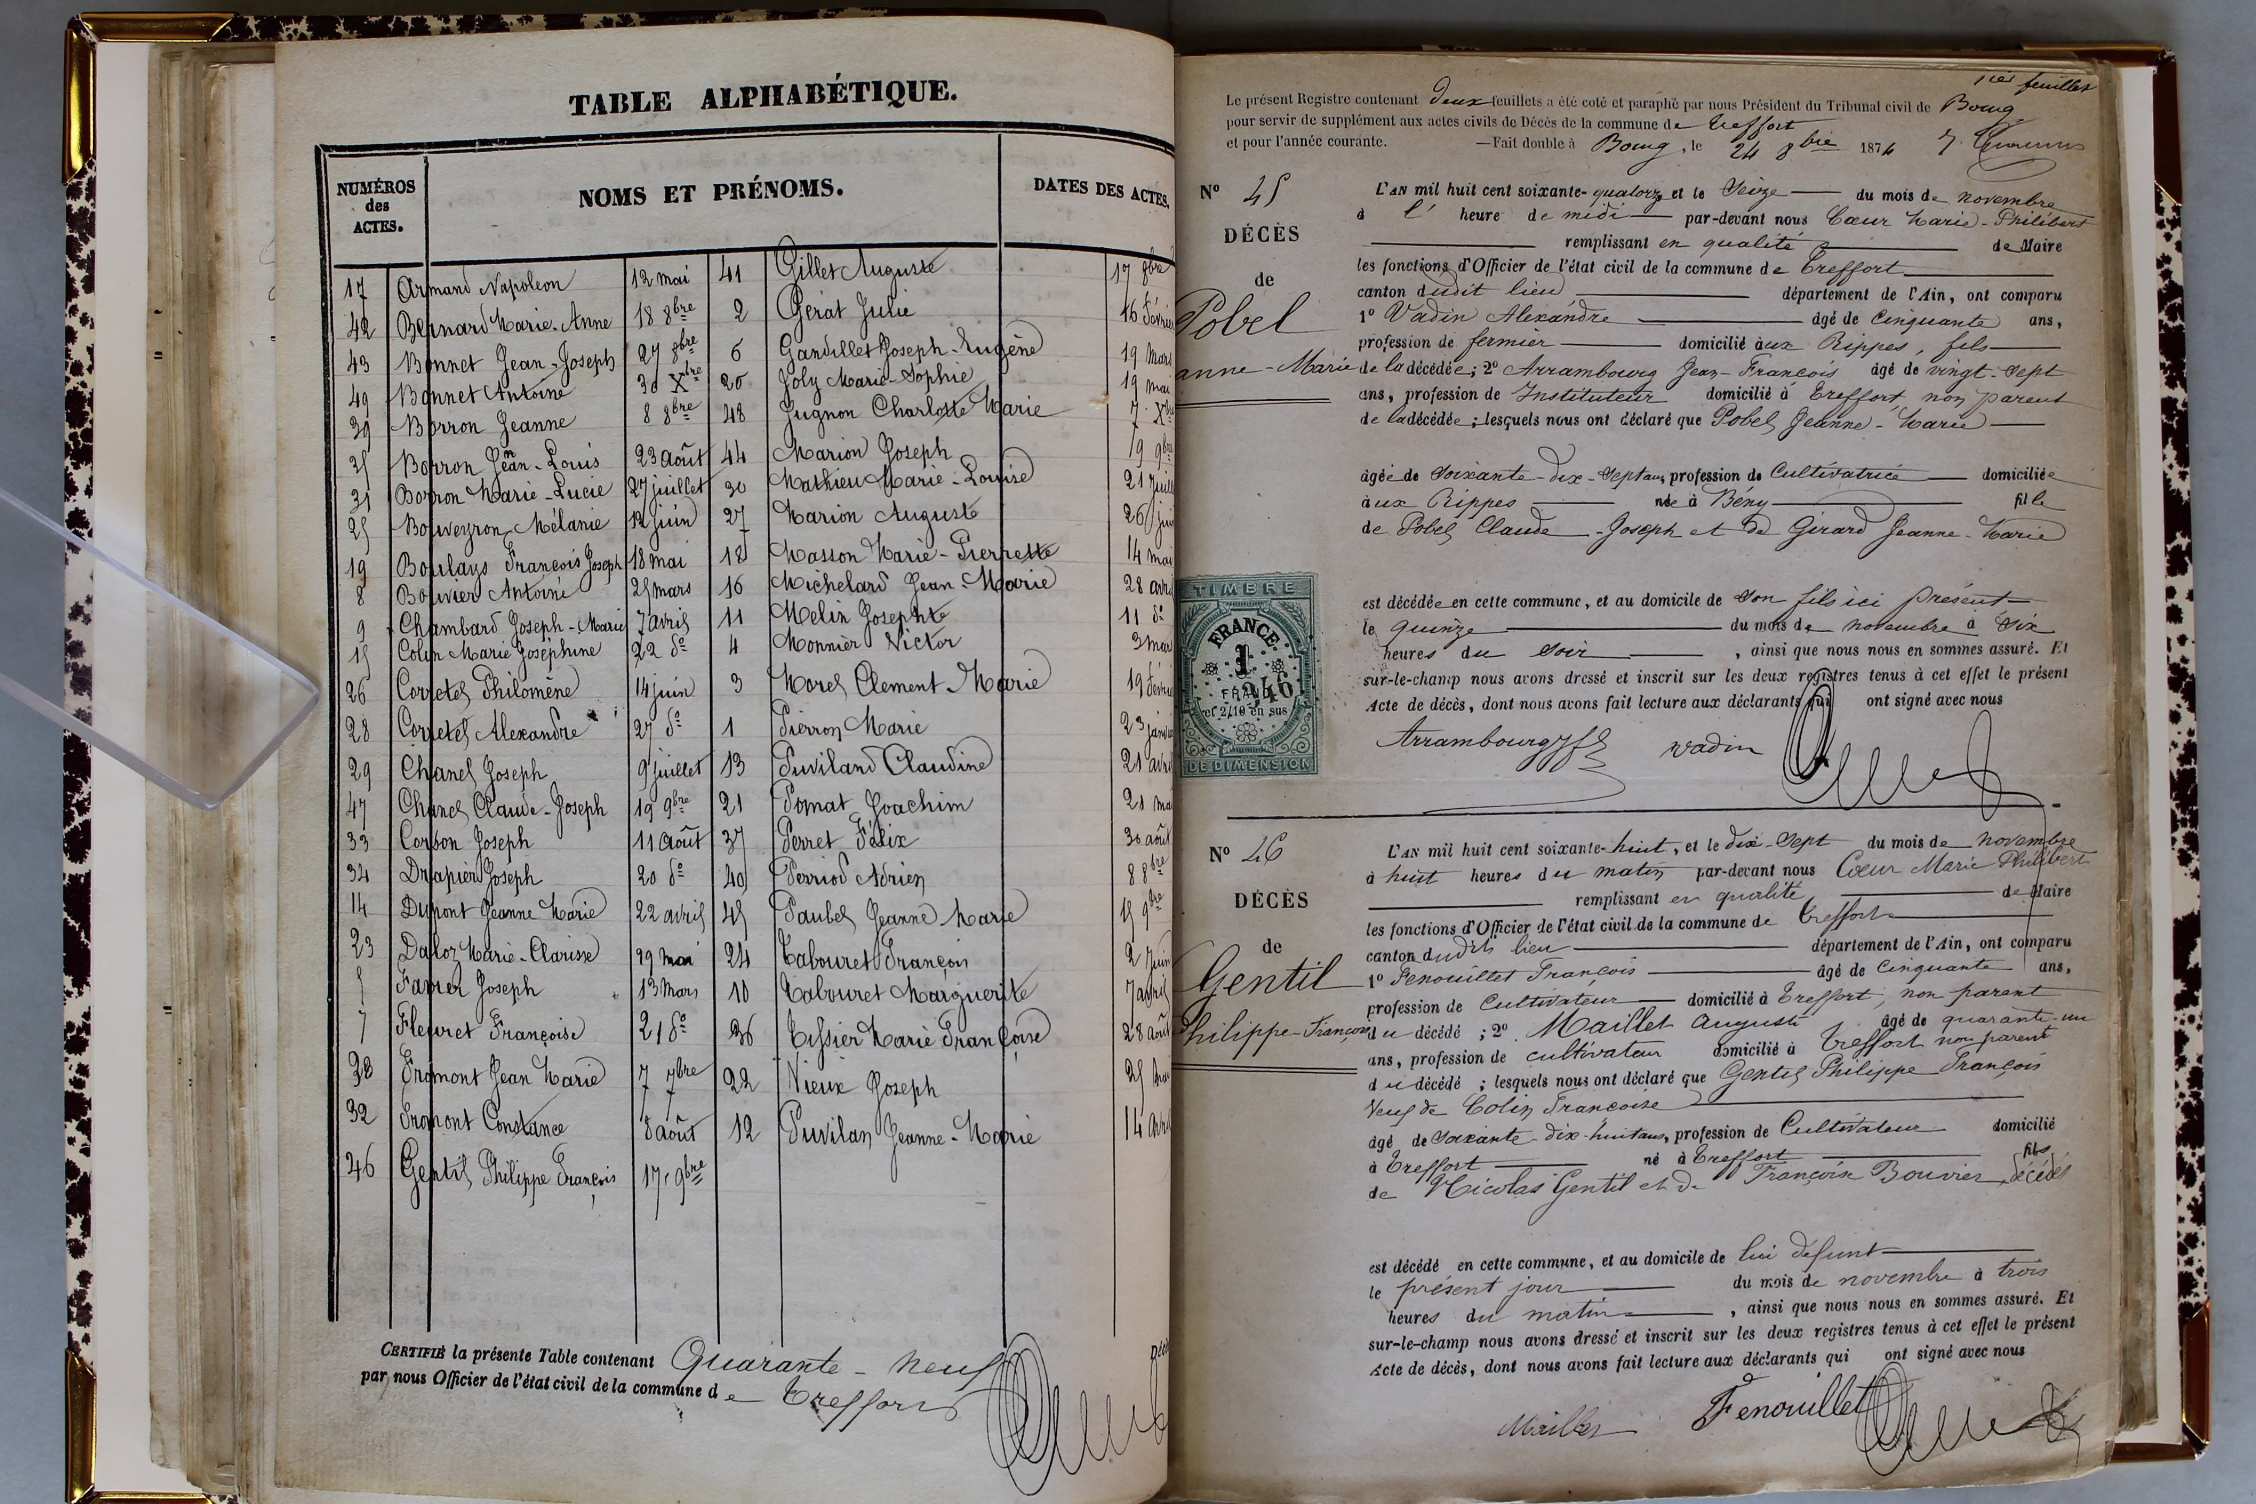 TABLE ALPHABÉTIQUE.
NUMÉROS des ACTES. NOMS ET PRÉNOMS. DATES DES ACTES.
17 Armand Napoléon 12 mai 41 Gillet Auguste 17 8bre
42 Bernard Marie-Anne 18 8bre 2 Gérat Julie 16 Févrie
43 Bonnet Jean-Joseph 27 8bre 6 Gandillet Joseph-Eugène 19 Mars
49 Bonnet Antoine 30 Xbre 20 Joly Marie-Sophie 19 mai
39 Borron Jeanne 8 8bre 48 Jugnon Charlotte Marie 7 Xbre
35 Borron Jean-Louis 23 août 44 Marion Joseph 19 9bre
31 Borron Marie-Lucie 27 juillet 30 Mathieu Marie-Louise 21 Juill
25 Bouveyron Mélanie 12 juin 27 Marion Auguste 26 jui
19 Boulays François Joseph 18 mai 18 Masson Marie-Pierrette 14 mai
8 Bouvier Antoine 25 mars 16 Michelard Jean-Marie 28 avri
9 Chambard Joseph-Marie 7 avril 11 Melin Josephte 11 do
15 Colin Marie Joséphine 22 do 4 Monnier Victor 3 mar
26 Corretel Philomène 14 juin 3 Morel Clement-Marie 19 Févrie
28 Corretel Alexandre 27 do 1 Pierron Marie 23 janvie
29 Chanel Joseph 9 juillet 13 Puviland Claudine 21 avri
47 Chanel Claude-Joseph 19 9bre 21 Pomat Joachim 21 mai
33 Corson Joseph 11 août 37 Perret Félix 30 août
34 Drapier Joseph 20 do 40 Perriod Adrien 8 8bre
14 Dupont Jeanne Marie 22 avril 45 Paubel Jeanne Marie 15 9bre
23 Daloz Marie-Clarisse 29 mai 24 Tabouret François 2 juin
5 Favier Joseph 13 Mars 10 Tabouret Marguerite 7 avril
7 Fleuret Françoise 21 do 36 Tissier Marie Françoise 28 août
38 Fromont Jean Marie 7 7bre 22 Vieux Joseph 25 mai
32 Fromont Constance 8 août 12 Puvilan Jeanne-Marie 14 Avril
46 Gentil Philippe François 17 9bre
CERTIFIÉ la présente Table contenant Quarante-neuf
par nous Officier de l'état civil de la commune de Treffort
1er feuillet
Le présent Registre contenant deux feuillets a été coté et paraphé par nous Président du Tribunal civil de Bourg
pour servir de supplément aux actes civils de Décès de la commune de Treffort
et pour l'année courante. —Fait double à Bourg, le 24 8bre 1874
N° 45
DÉCÈS
de
Pobel
anne-Marie
L'AN mil huit cent soixante-quatorze et le Seize du mois de novembre
à l' heure de midi par-devant nous Cœur Marie-Philibert
remplissant en qualité de Maire
les fonctions d'Officier de l'état civil de la commune de Treffort
canton dudit lieu département de l'Ain, ont comparu
1° Vadin Alexandre âgé de Cinquante ans,
profession de fermier domicilié aux Rippes, fils
de la décédée; 2° Arrambourg Jean-François âgé de vingt-sept
ans, profession de Instituteur domicilié à Treffort, non parent
de la décédée; lesquels nous ont déclaré que Pobel Jeanne-Marie
âgée de soixante-dix-sept ans, profession de Cultivatrice domiciliée
aux Rippes née à Bény fille
de Pobel Claude-Joseph et de Girard Jeanne-Marie
est décédée en cette commune, et au domicile de son fils ici présent
le quinze du mois de novembre à Six
heures du soir, ainsi que nous nous en sommes assuré. Et
sur-le-champ nous avons dressé et inscrit sur les deux registres tenus à cet effet le présent
Acte de décès, dont nous avons fait lecture aux déclarants qui ont signé avec nous
Arrambourg Vadin
TIMBRE
FRANCE.
1
FRANC
246
et 2/10 en sus
DE DIMENSION
N° 46
DÉCÈS
de
Gentil
Philippe-François
L'AN mil huit cent soixante-huit, et le dix-sept du mois de novembre
à huit heures du matin par-devant nous Cœur Marie Philibert
remplissant en qualité de Maire
les fonctions d'Officier de l'état civil de la commune de Treffort
canton dudit lieu département de l'Ain, ont comparu
1° Fenouillet François âgé de Cinquante ans,
profession de Cultivateur domicilié à Treffort, non parent
du décédé; 2° Maillet Auguste âgé de quarante-un
ans, profession de cultivateur domicilié à Treffort non parent
du décédé; lesquels nous ont déclaré que Gentil Philippe François
Veuf de Colin Françoise
âgé de soixante-dix-huit ans, profession de Cultivateur domicilié
à Treffort né à Treffort fils
de Nicolas Gentil et de Françoise Bouvier, décédés
est décédé en cette commune, et au domicile de lui défunt
le présent jour du mois de novembre à trois
heures du matin, ainsi que nous nous en sommes assuré. Et
sur-le-champ nous avons dressé et inscrit sur les deux registres tenus à cet effet le présent
Acte de décès, dont nous avons fait lecture aux déclarants qui ont signé avec nous
Maillet Fenouillet